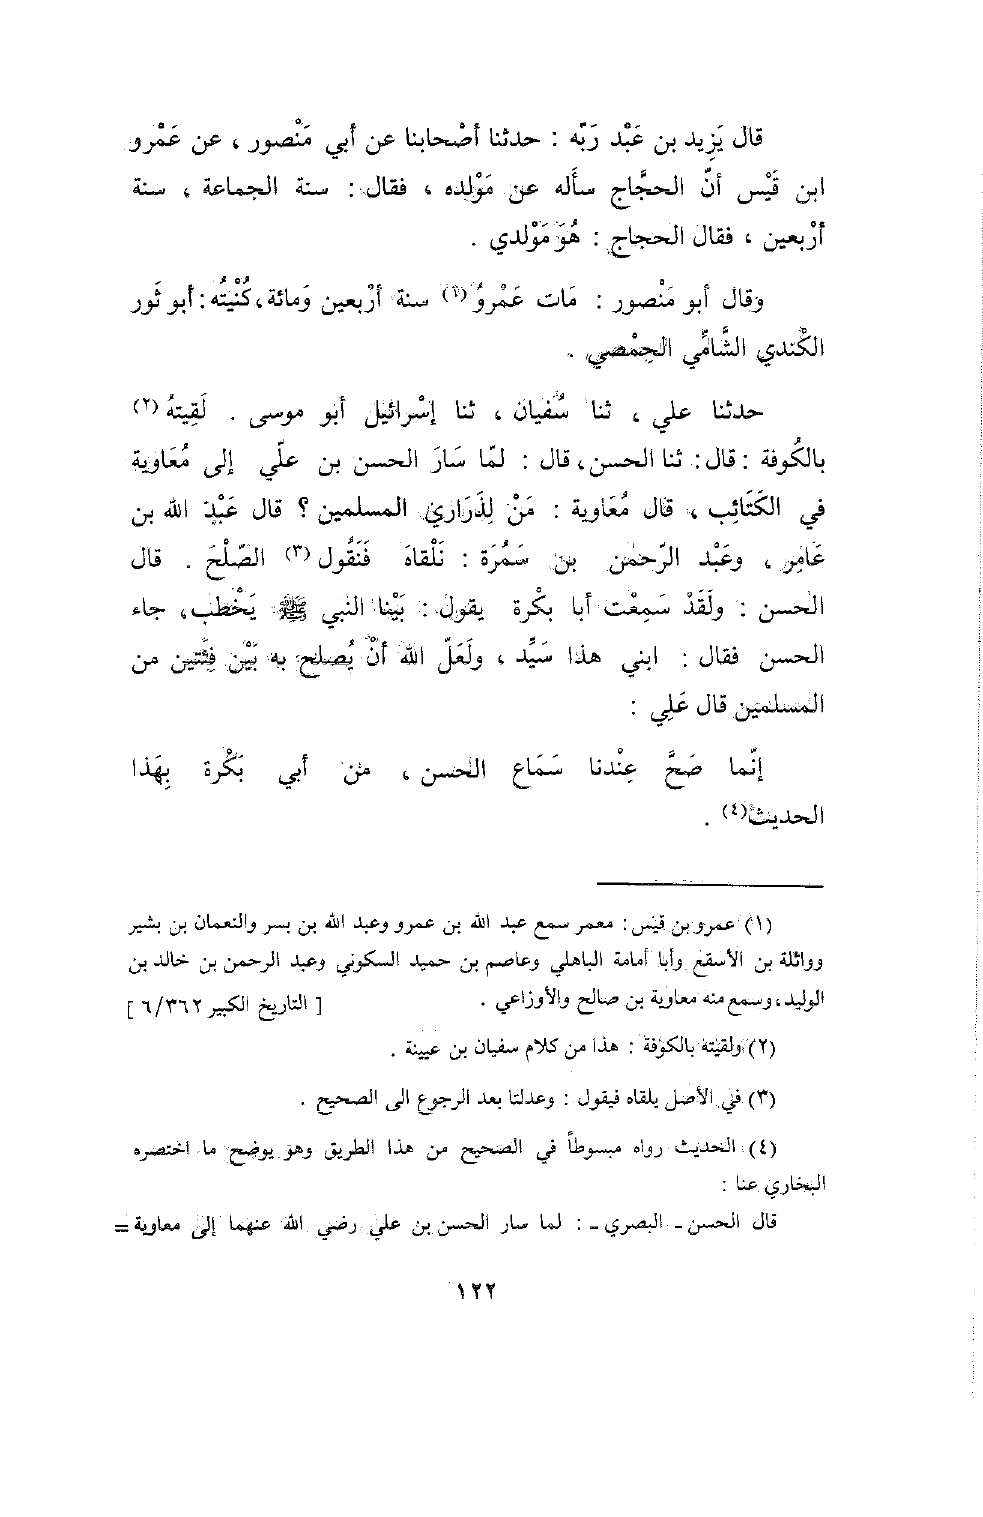 قال يَزِيد بن عَبْد رَبّه : حدثنا أصْحابنا عن أبي مَنْصور ، عن عَمْرو
ابن قَيْس أنّ الحجَّاج سأله عن مَوْلده ، فقال : سنة الجماعة ، سنة
أرْبعين ، فقال الحجاج : هُوَ مَوْلدي .
وقال أبو مَنْصور : مَات عَمْروُ (١) سنة أرْبعين وَمائة ، كُنْيتُه : أبو ثَور
الكْندي الشَّامِّي الحِمْصي .
حدثنا علي ، ثنا سُفيان ، ثنا إسْرائيل أبو موسى . لَقِيتهُ (٢)
بالكُوفة : قال : ثنا الحسن ، قال : لمّا سَارَ الحسن بن علّي إلى مُعَاوية
في الكَتَائِب ، قال مُعَاوية : مَنْ لِذَرَاريْ المسلمين ؟ قال عَبْد الله بن
عَامِر ، وعَبْد الرّحمٰن بن سَمُرَة : نَلْقاهَ فَنَقُول (٣) الصّلْحَ . قال
الحسن : ولَقَدْ سَمِعْت أبا بكْرة يقول : بَيْنا النبي ﷺ يَخْطب ، جاء
الحسن فقال : ابني هذا سَيِّد ، ولَعَلّ الله أنْ يُصلح به بَيْن فِئتين من
المسلمين قال عَلِي :
إنّما صَحَّ عِنْدنا سَمَاع الحسن ، من أبي بَكْرة بِهَذا
الحديث (٤) .
(١) عمرو بن قيس : معمر سمع عبد الله بن عمرو وعبد الله بن بسر والنعمان بن بشير
وواثلة بن الأسقع وأبا أمامة الباهلي وعاصم بن حميد السكوني وعبد الرحمن بن خالد بن
الوليد ، وسمع منه معاوية بن صالح والأوزاعي . [ التاريخ الكبير ٦/٣٦٢ ]
(٢) ولقيته بالكوفة : هذا من كلام سفيان بن عيينة .
(٣) في الأصل يلقاه فيقول : وعدلنا بعد الرجوع الى الصحيح .
(٤) الحديث رواه مبسوطاً في الصحيح من هذا الطريق وهو يوضح ما اختصره
البخاري عنا :
قال الحسن ـ البصري ـ : لما سار الحسن بن علي رضي الله عنهما إلى معاوية =
١٢٢